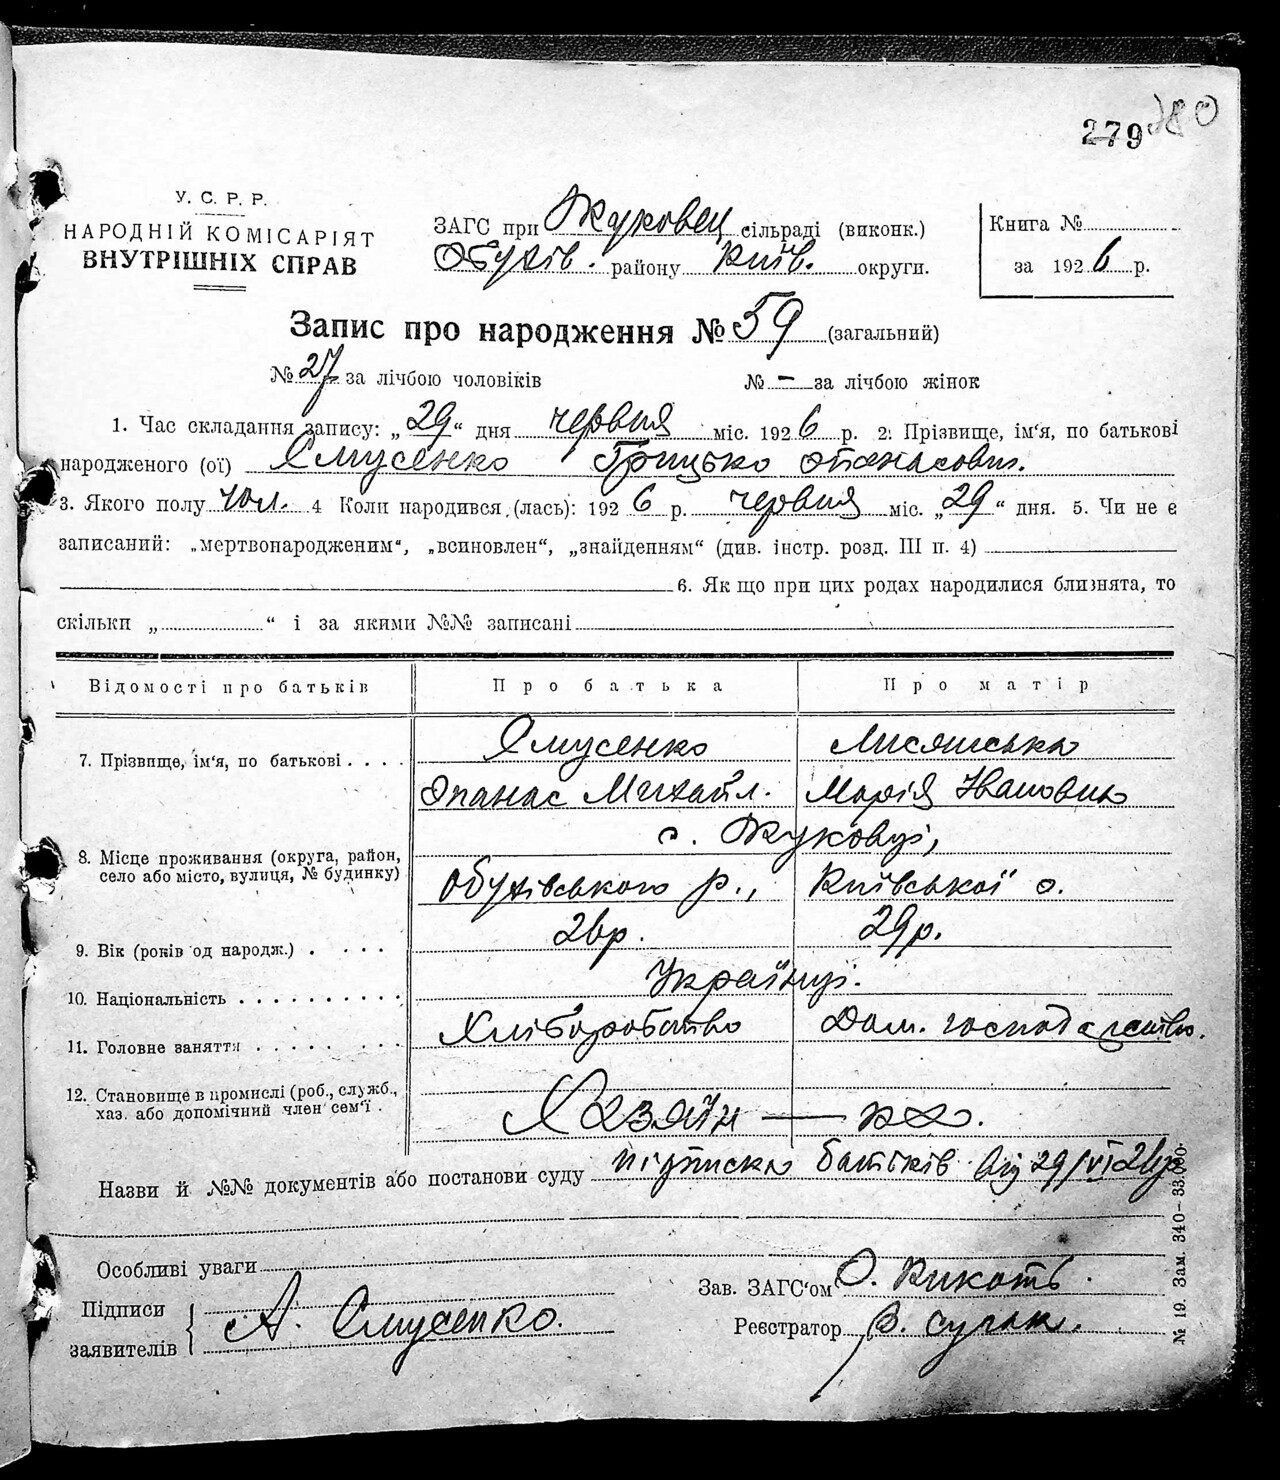 279 280
У. С. Р. Р.
НАРОДНІЙ КОМІСАРІЯТ
ВНУТРІШНІХ СПРАВ
ЗАГС при Жуковец сільраді (виконк.)
Обухів. району Київ. округи.
Книга №
за 1926 р.
Запис про народження № 59 (загальний)
№ 27 за лічбою чоловіків № — за лічбою жінок
1. Час складання запису: „29“ дня червня міс. 1926 р. 2. Прізвище, ім‘я, по батькові
народженого (ої) Ямусенко Грицько Опанасович.
3. Якого полу чол. 4 Коли народився (лась): 1926 р. червня міс. „29“ дня. 5. Чи не є
записаний: „мертвонародженим“, „всиновлен“, „знайденням“ (див. інстр. розд. III п. 4)
6. Як що при цих родах народилися близнята, то
скільки „ “ і за якими №№ записані
Відомості про батьків Про батька Про матір
7. Прізвище, ім‘я, по батькові . . . . Ямусенко
Опанас Михайл. Марія Івановна
8. Місце проживання (округа, район, село або місто, вулиця, № будинку) с. Жуковці,
Обухівського р., Київської о.
9. Вік (років од народж.) . . . . 26р. 29р.
10. Національність . . . . . . . . . . Українці.
11. Головне заняття . . . . . . . . Хліборобство Дом. господарство.
12. Становище в промислі (роб., служб., хаз. або допомічний член сем‘ї . Хазяїн —
Назви й №№ документів або постанови суду підписка батьків від 29/VI 26р
Особливі уваги
Підписи
заявителів А. Ямусенко.
Зав. ЗАГС‘ом О.
Реєстратор В.
№ 19. Зам. 340—33.000.